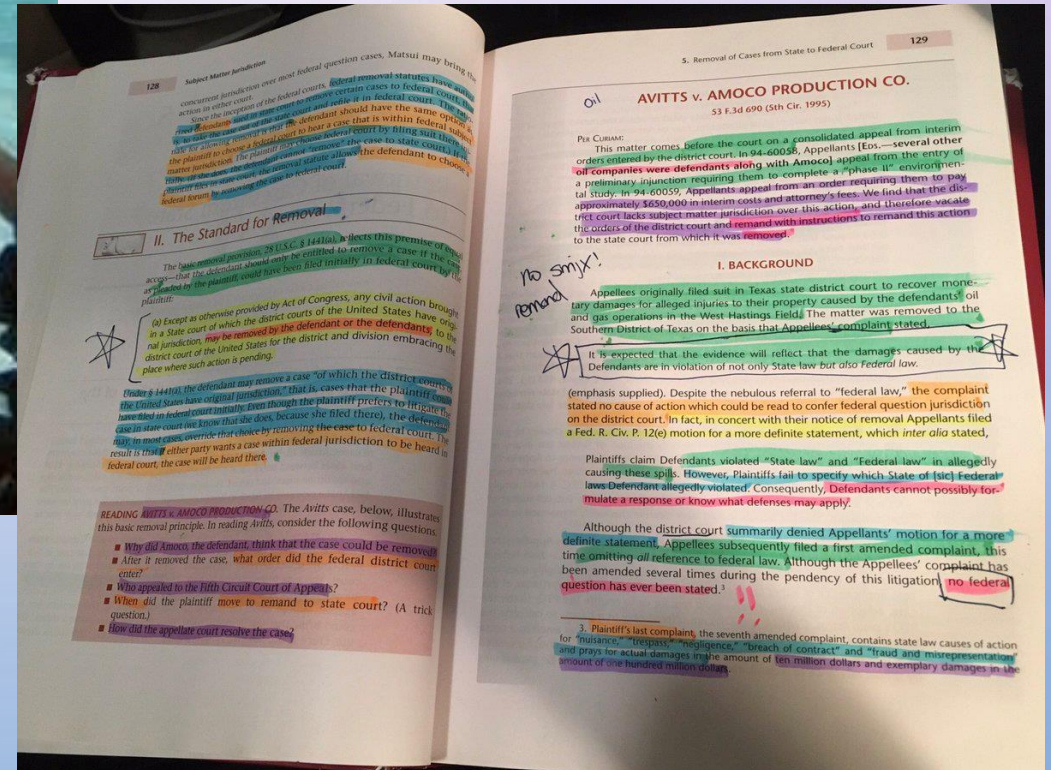 128
Subject Matter Jurisdiction
concurrent jurisdiction over most federal question cases, Matsui may bring the
action in either court.
Since the inception of the federal courts, federal removal statutes have
defendants to remove certain cases to federal court,
to take the case out of the state court and refile it in federal court. The
for allowing removal is that the defendant should have the same option as
the plaintiff to choose a federal court to hear a case that is within federal subject
matter jurisdiction. The plaintiff may choose federal court by filing suit there
the defendant cannot "remove" the case to state court.)
plaintiff files in state court, the removal statute allows the defendant to choose
federal forum by removing the case to federal court.
II. The Standard for Removal
The basic removal provision, 28 U.S.C. § 1441(a), reflects this premise of equal
access—that the defendant should only be entitled to remove a case if the case,
as pleaded by the plaintiff, could have been filed initially in federal court by the
plaintiff:
(a) Except as otherwise provided by Act of Congress, any civil action brought
in a State court of which the district courts of the United States have origi-
nal jurisdiction, may be removed by the defendant or the defendants, to the
district court of the United States for the district and division embracing the
place where such action is pending.
Under § 1441(a), the defendant may remove a case "of which the district courts of
the United States have original jurisdiction," that is, cases that the plaintiff could
have filed in federal court initially. Even though the plaintiff prefers to litigate the
case in state court (we know that she does, because she filed there), the defendant
may, in most cases, override that choice by removing the case to federal court. The
result is that if either party wants a case within federal jurisdiction to be heard in
federal court, the case will be heard there.
READING AVITTS v. AMOCO PRODUCTION CO. The Avitts case, below, illustrates
this basic removal principle. In reading Avitts, consider the following questions.
■ Why did Amoco, the defendant, think that the case could be removed?
■ After it removed the case, what order did the federal district court
enter?
■ Who appealed to the Fifth Circuit Court of Appeals?
■ When did the plaintiff move to remand to state court? (A trick
question.)
■ How did the appellate court resolve the case?
5. Removal of Cases from State to Federal Court
129
Oil
AVITTS v. AMOCO PRODUCTION CO.
53 F.3d 690 (5th Cir. 1995)
PER CURIAM:
This matter comes before the court on a consolidated appeal from interim
orders entered by the district court. In 94-60058, Appellants [Eos.—several other
oil companies were defendants along with Amoco] appeal from the entry of
a preliminary injunction requiring them to complete a "phase II" environmen-
tal study. In 94-60059, Appellants appeal from an order requiring them to pay
approximately $650,000 in interim costs and attorney's fees. We find that the dis-
trict court lacks subject matter jurisdiction over this action, and therefore vacate
the orders of the district court and remand with instructions to remand this action
to the state court from which it was removed.
no smjx!
remand
I. BACKGROUND
Appellees originally filed suit in Texas state district court to recover mone-
tary damages for alleged injuries to their property caused by the defendants' oil
and gas operations in the West Hastings Field. The matter was removed to the
Southern District of Texas on the basis that Appellees' complaint stated,
It is expected that the evidence will reflect that the damages caused by the
Defendants are in violation of not only State law but also Federal law.
(emphasis supplied). Despite the nebulous referral to "federal law," the complaint
stated no cause of action which could be read to confer federal question jurisdiction
on the district court. In fact, in concert with their notice of removal Appellants filed
a Fed. R. Civ. P. 12(e) motion for a more definite statement, which inter alia stated,
Plaintiffs claim Defendants violated "State law" and "Federal law" in allegedly
causing these spills. However, Plaintiffs fail to specify which State of [sic] Federal
laws Defendant allegedly violated. Consequently, Defendants cannot possibly for-
mulate a response or know what defenses may apply.
Although the district court summarily denied Appellants' motion for a more
definite statement, Appellees subsequently filed a first amended complaint, this
time omitting all reference to federal law. Although the Appellees' complaint has
been amended several times during the pendency of this litigation, no federal
question has ever been stated.³
!!
3. Plaintiff's last complaint, the seventh amended complaint, contains state law causes of action
for "nuisance," "trespass," "negligence," "breach of contract" and "fraud and misrepresentation"
and prays for actual damages in the amount of ten million dollars and exemplary damages in the
amount of one hundred million dollars.